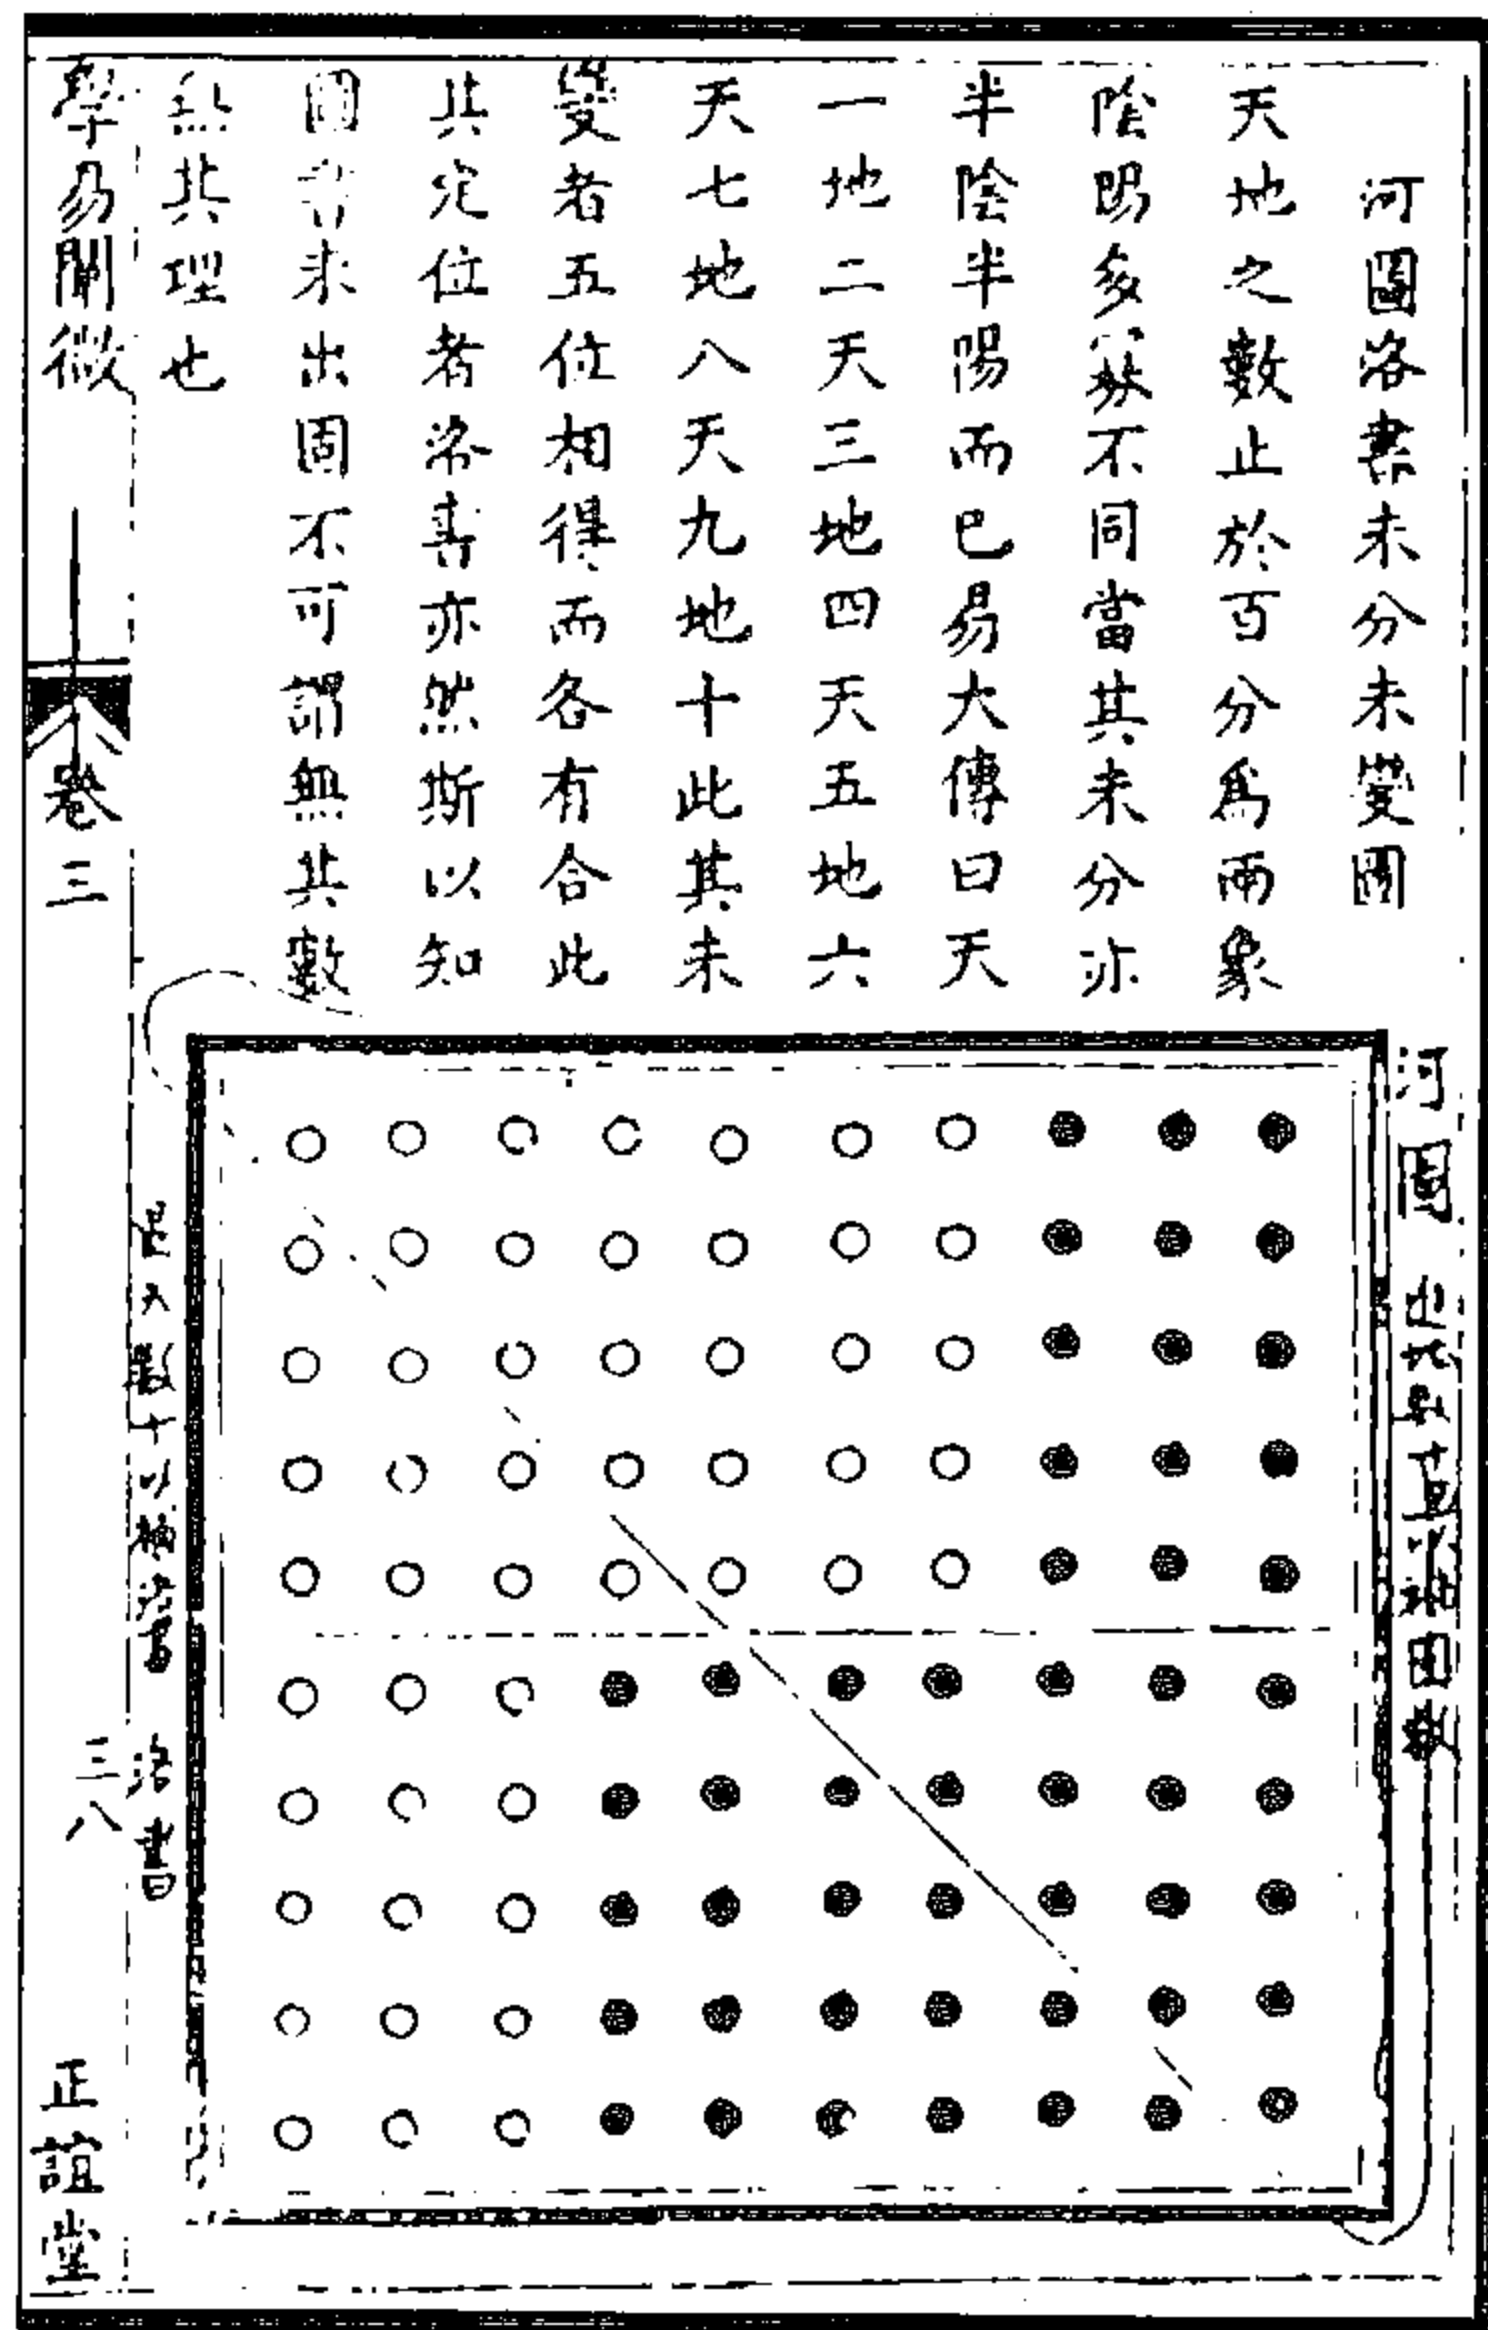 河圖洛書未分未變圖
天地之數止於百分爲兩象
陰陽多寡不同當其未分亦
半陰半陽而已易大傳曰天
一地二天三地四天五地六
天七地八天九地十此其未
變者五位相得而各有合此
其定位者洛書亦然斯以知
圖書未出固不可謂無其數
無其理也
河圖
洛書
學易闡微
卷三
三八
正誼堂